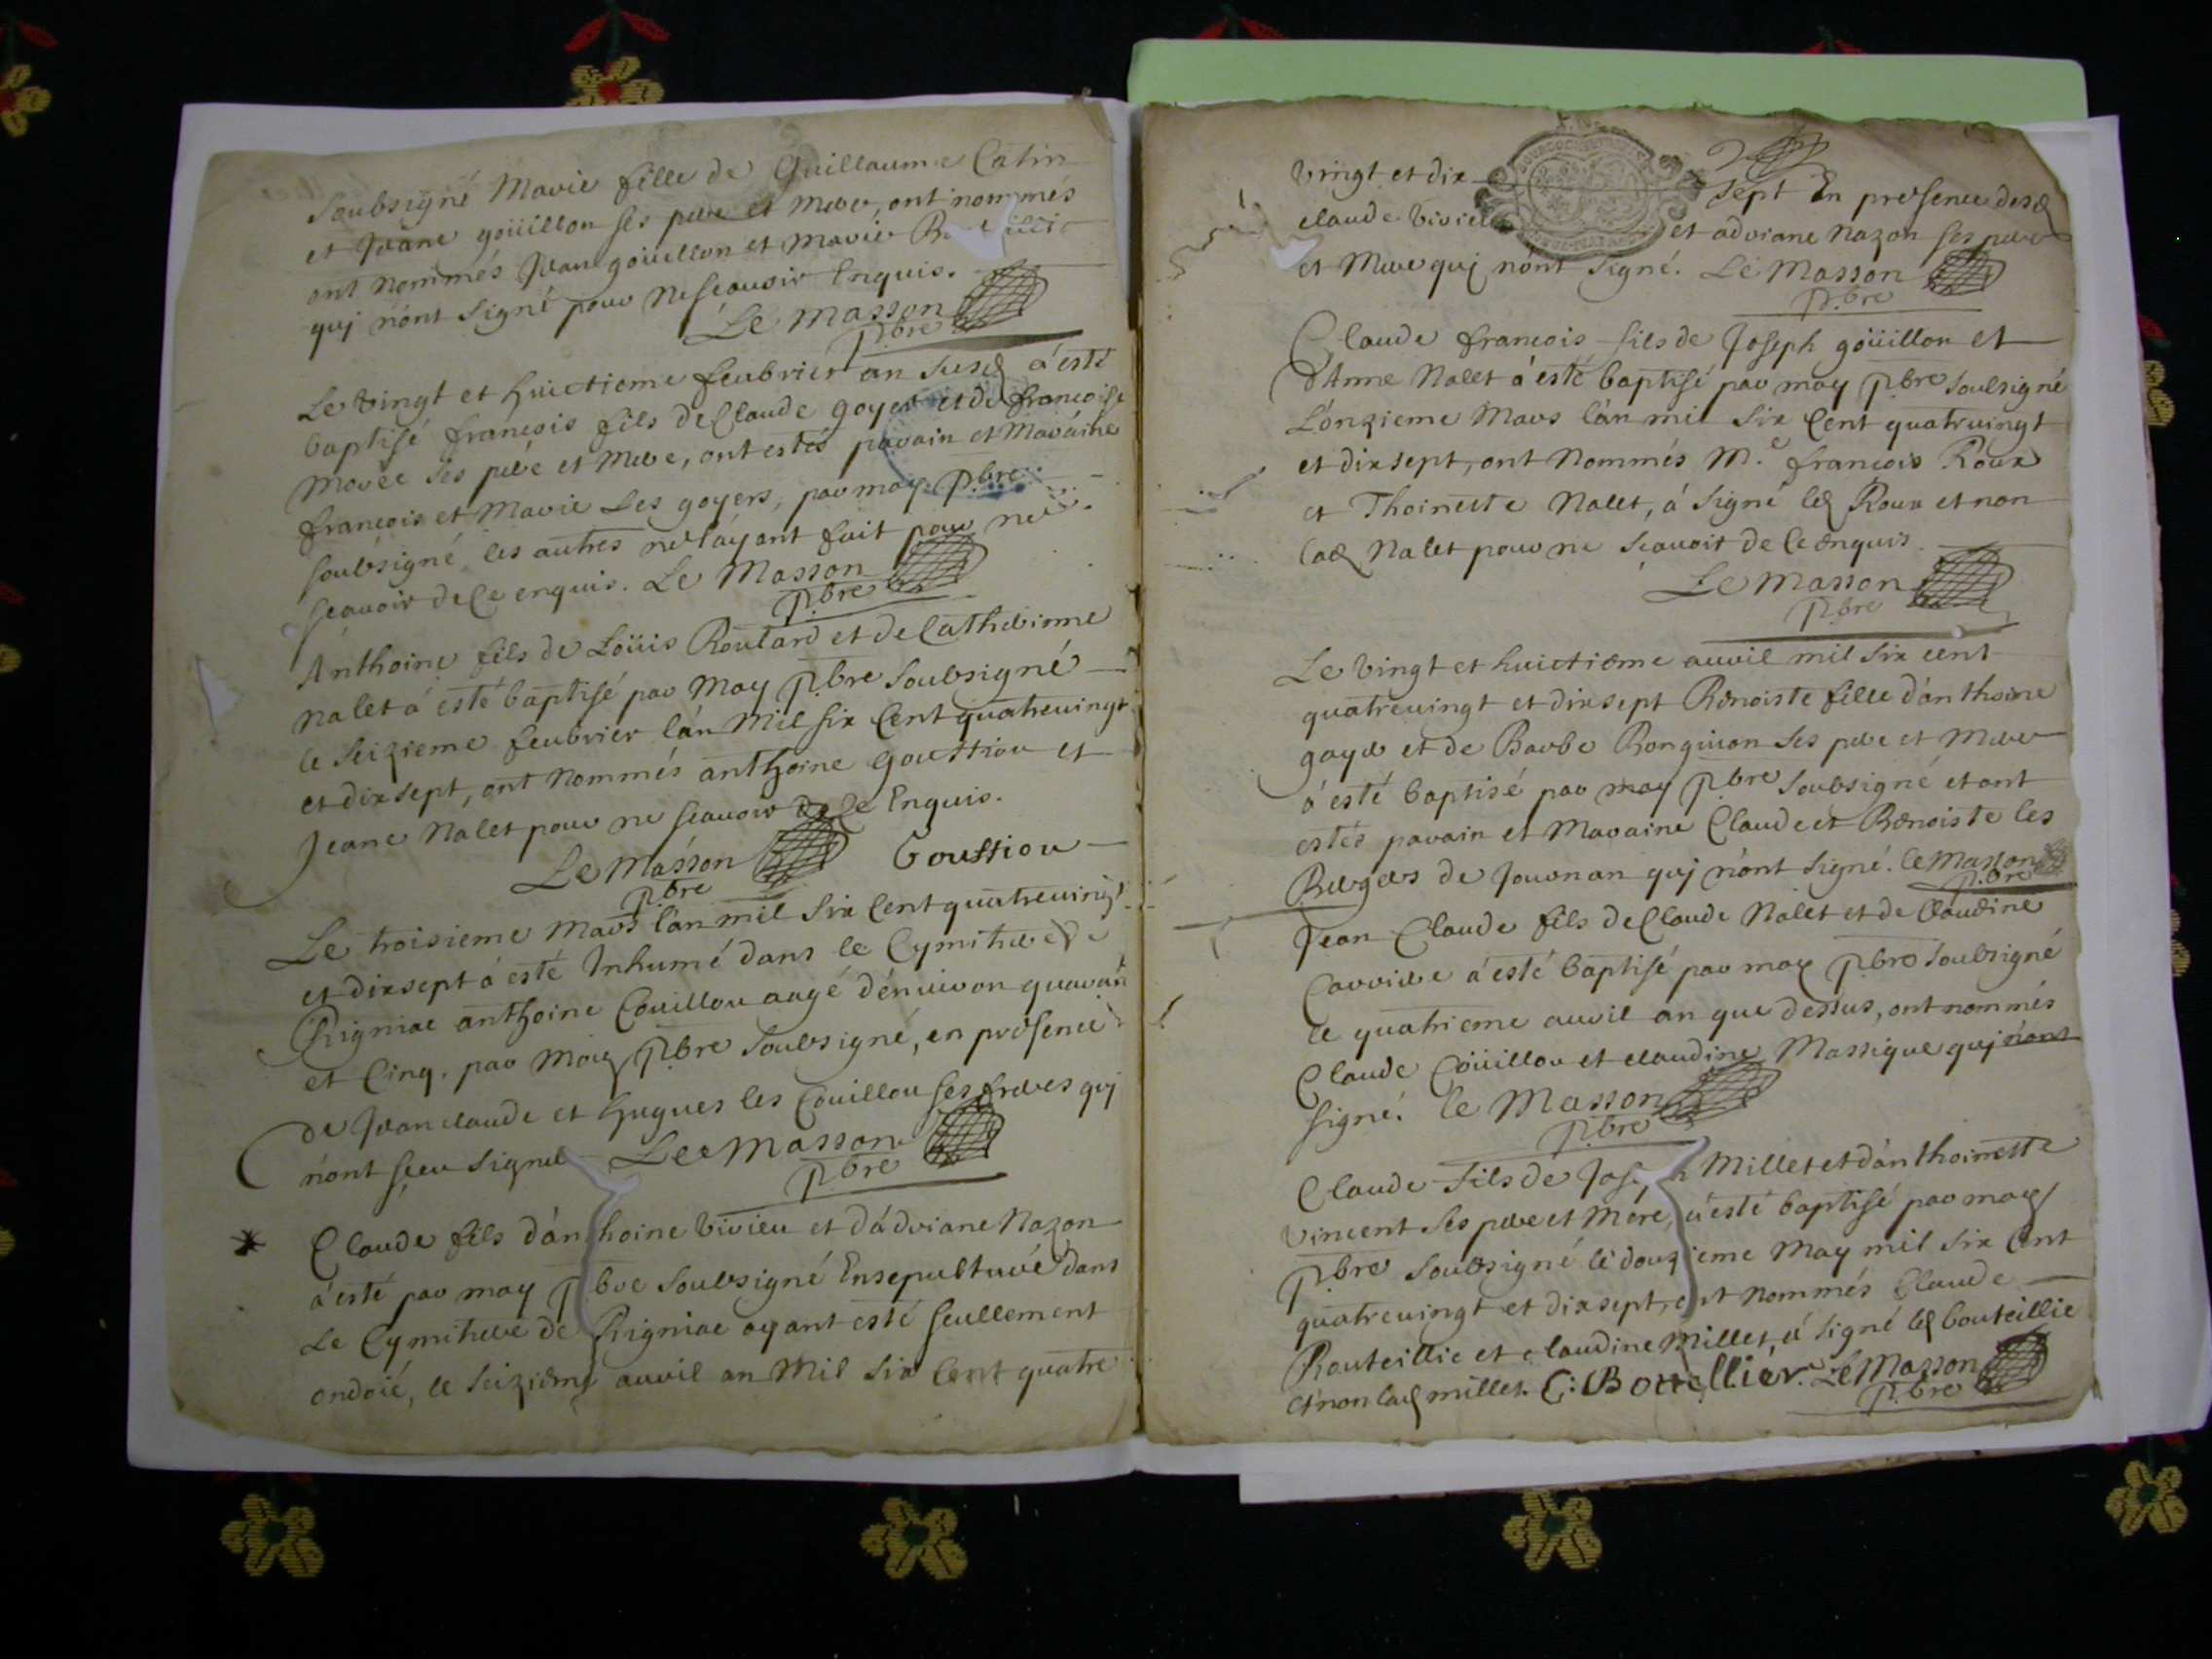 soubsigné Marie fille de Guillaume Catin
et Jeane goüillon ses pere et mere, ont nommés
ont nommés Jean goüillon et Marie
quj n'ont signé pour ne scauoir Enquis.
Le Masson
pbre
Le vingt et huictieme feubrier an susd a esté
baptisé francois fils de Claude goyer et de francoise
Morée ses pere et mere, ont estés parain et Maraine
francois et Marie Les goyers, par moy pbre
soubsigné, les autres ne l'ayant fait pour ne
scauoir de Ce enquis. Le Masson
pbre
Anthoine fils de Loüis Routard et de Catherinne
nalet a esté baptisé par Moy pbre soubsigné
le seizieme feubrier l'an Mil six Cent quatreuingt
et dixsept, ont nommés anthoine goustiou et
Jeane Nalet pour ne scauoir de Ce Enquis.
Le Masson Goustiou
pbre
Le troisieme Mars l'an mil six Cent quatreuingt
et dixsept a esté Inhumé dans le Cymitiere de
Rigniac anthoine Couillou aagé d'enuiron quaran
et Cinq, par Moy pbre soubsigné, en presence
de Jean claude et hugues les Couillou ses freres quj
n'ont sceu signer Le Masson
pbre
Claude fils d'anthoine Vivieu et d'adriane Nazon
a esté par moy pbre soubsigné Ensepulturé dans
Le Cymitiere de Rigniac ayant esté seullement
ondoié, le seizieme auril an Mil six Cent quatre
vingt et dix sept En presence desd
claude Vivieu et adriane Nazon ses pere
et Mere quj n'ont signé. Le Masson
pbre
Claude francois fils de Joseph goüillon et
d'Anne Nalet a esté baptisé par moy pbre soubsigné
L'onzieme Mars l'an mil six Cent quatruingt
et dixsept, ont Nommés M.e francois Roux
et Thoinette Nalet, a signé led Roux et non
lad Nalet pour ne scauoir de Ce enquis
Le Masson
pbre
Le vingt et huictieme auril mil six cent
quatreuingt et dixsept Benoiste fille d'anthoine
goyer et de Barbe Ronginon ses pere et Mere
a esté baptisé par moy pbre soubsigné et ont
estés parain et Maraine Claude et Benoiste les
Bergers de Journan quj n'ont signé. le Masson
pbre
Jean Claude fils de Claude Nalet et de Claudine
Carriere a esté baptisé par moy pbre soubsigné
le quatrieme auril an que dessus, ont nommés
Claude Coüillou et claudine Massique quj n'ont
signé. le Masson
pbre
Claude fils de Joseph Millet et d'anthoinette
Vincent ses pere et Mere, a esté baptisé par moy
pbre soubsigné le douzieme May mil six Cent
quatreuingt et dixsept, ont nommés Claude
Bouteillie et claudine Millet, a signé led bouteillie
et non lad millet. C: Botellier. Le Masson
pbre